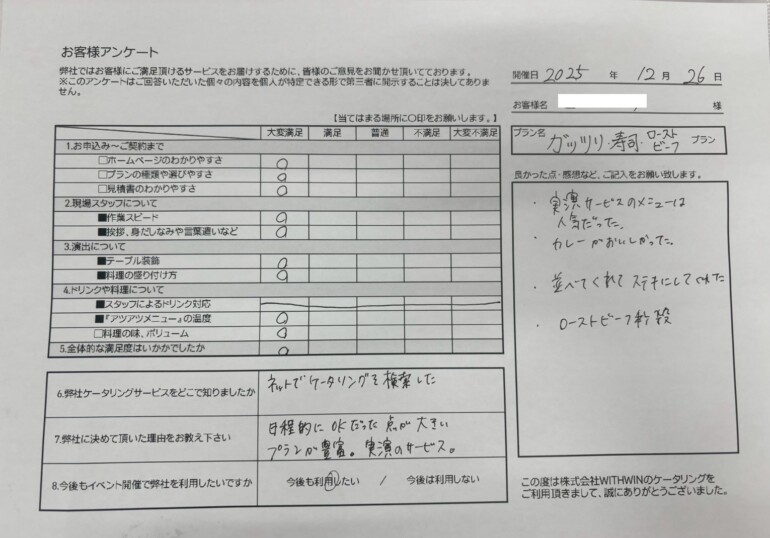 お客様アンケート
弊社ではお客様にご満足頂けるサービスをお届けするために、皆様のご意見をお聞かせ頂いております。
※このアンケートはご回答いただいた個々の内容を個人が特定できる形で第三者に開示することは決してありま
せん。
【当てはまる場所に〇印をお願いします。】
大変満足 満足 普通 不満足 大変不満足
1.お申込み～ご契約まで
□ホームページのわかりやすさ ○
□プランの種類や選びやすさ ○
□見積書のわかりやすさ ○
2.現場スタッフについて
■作業スピード ○
■挨拶、身だしなみや言葉遣いなど ○
3.演出について
■テーブル装飾 ○
■料理の盛り付け方 ○
4.ドリンクや料理について
■スタッフによるドリンク対応
■『アツアツメニュー』の温度 ○
□料理の味、ボリューム ○
5.全体的な満足度はいかがでしたか ○
6.弊社ケータリングサービスをどこで知りましたか
ネットでケータリングを検索した
7.弊社に決めて頂いた理由をお教え下さい
日程的にOKだった点が大きい
プランが豊富。実演のサービス。
8.今後もイベント開催で弊社を利用したいですか
今後も利用したい / 今後は利用しない
開催日 2025 年 12 月 26 日
お客様名 様
プラン名 ガッツリ・寿司・ローストビーフ プラン
良かった点・感想など、ご記入をお願い致します。
・実演サービスのメニューは
人気だった。
・カレーがおいしかった。
・並べてくれてステキにしてくれた
・ローストビーフ
この度は株式会社WITHWINのケータリングを
ご利用頂きまして、誠にありがとうございました。